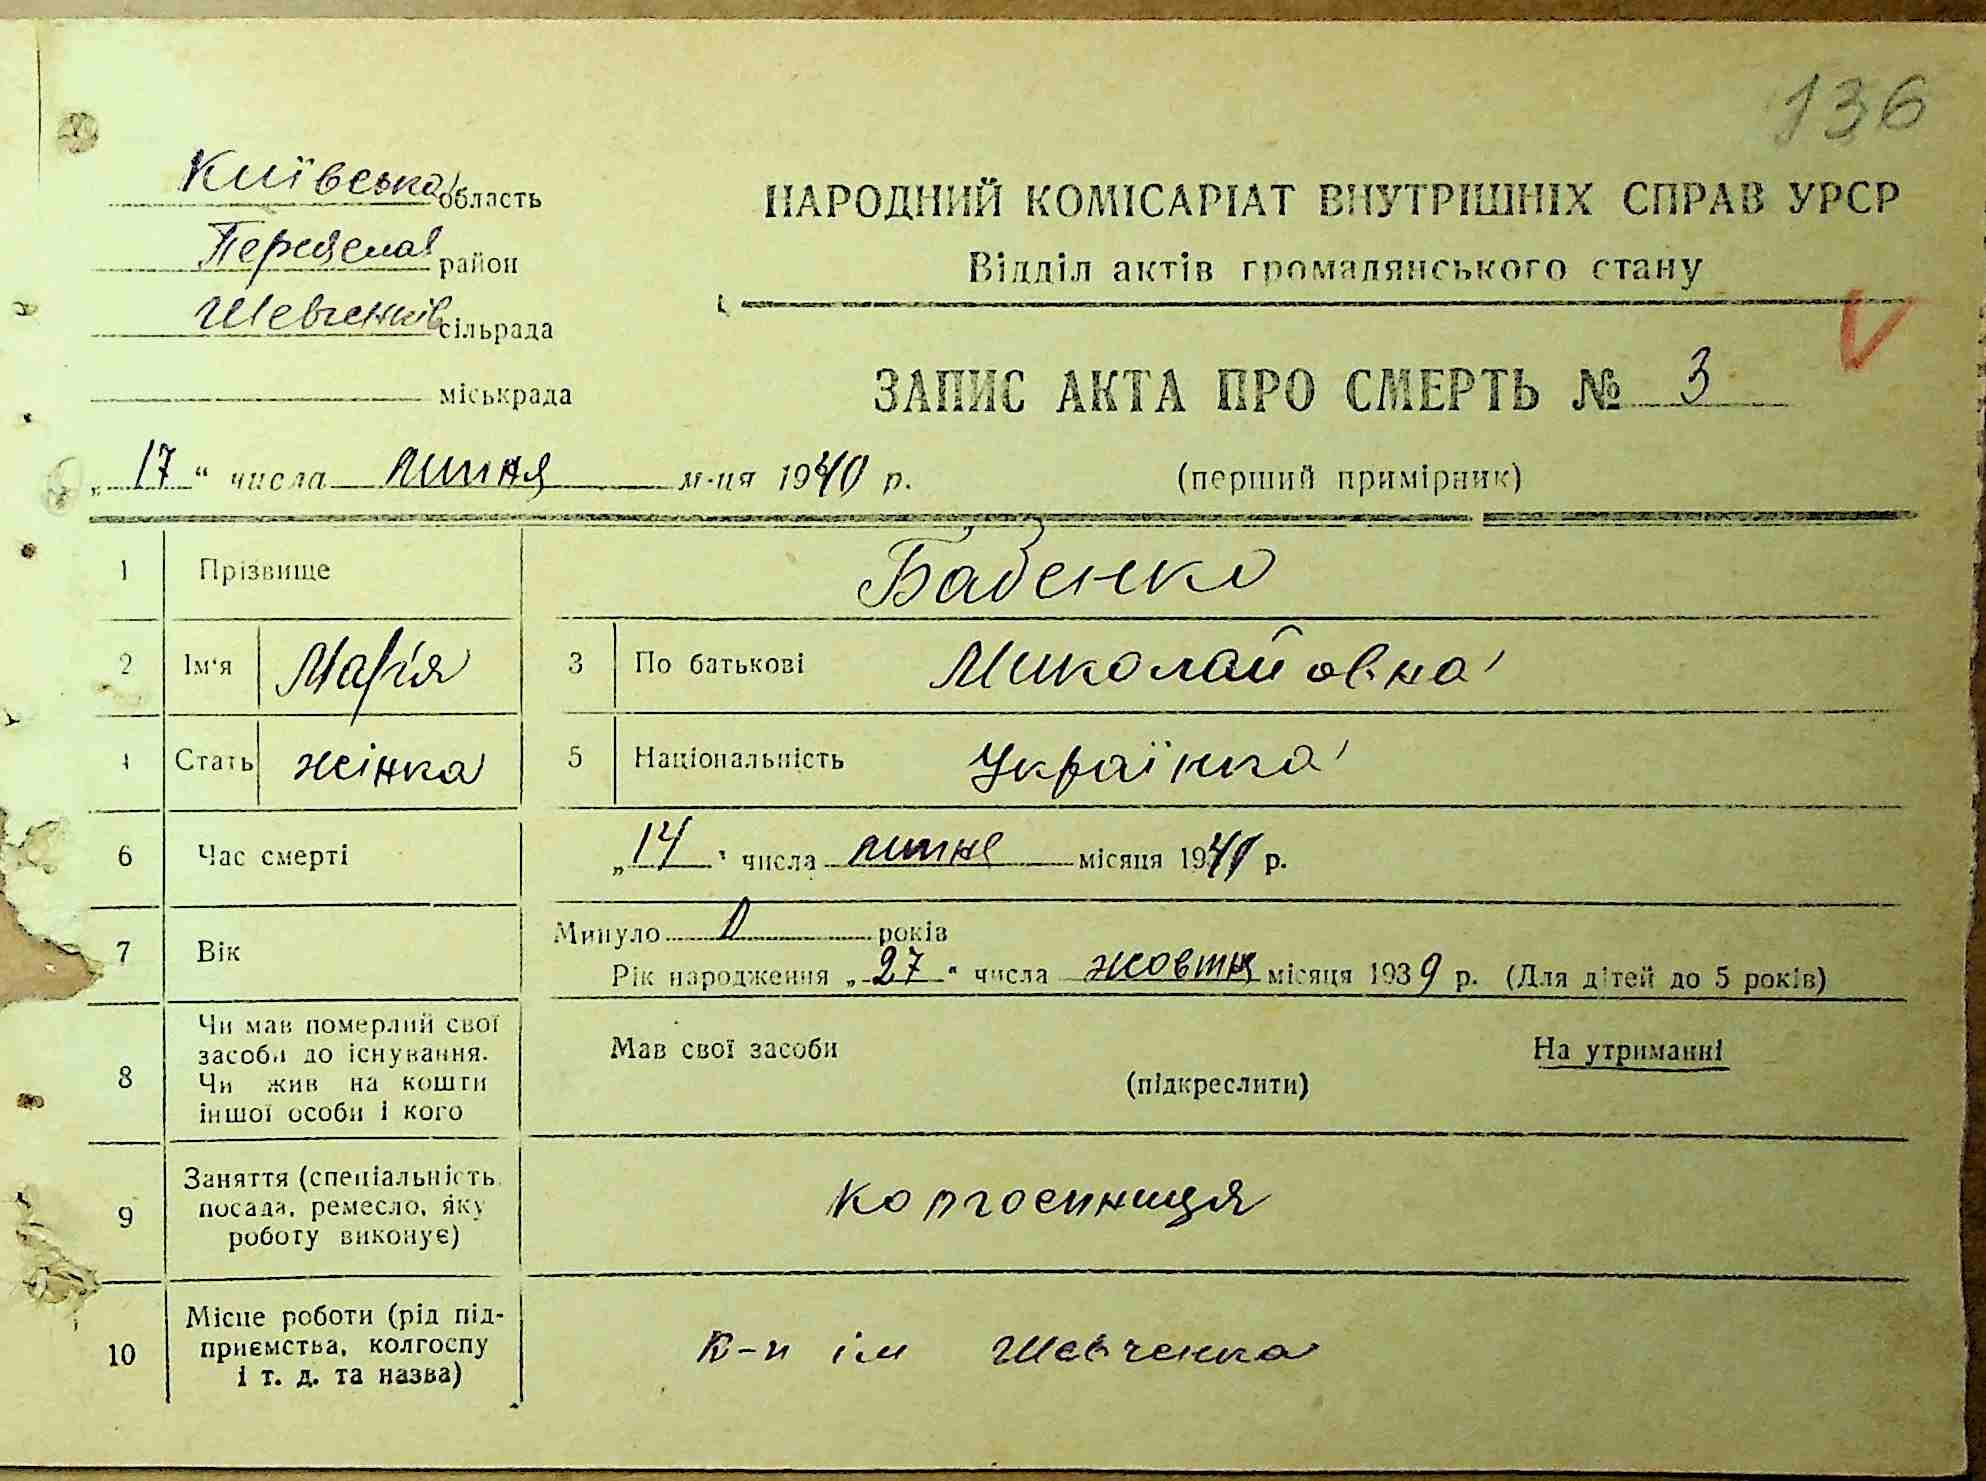 136
Київська область
Переяслав район
Шевченків сільрада
міськрада
НАРОДНИЙ КОМІСАРІАТ ВНУТРІШНІХ СПРАВ УРСР
Відділ актів громадянського стану
ЗАПИС АКТА ПРО СМЕРТЬ № 3
„17“ числа липня м-ця 1940 р.
(перший примірник)
1 Прізвище Бабенко
2 Ім'я Марія 3 По батькові Миколайовна
4 Стать жінка 5 Національність Українка
6 Час смерті „14“ числа липня місяця 1940 р.
7 Вік Минуло 0 років
Рік народження „27“ числа жовтня місяця 1939 р. (Для дітей до 5 років)
8 Чи мав померлий свої засоби до існування. Чи жив на кошти іншої особи і кого
Мав свої засоби На утриманні
(підкреслити)
9 Заняття (спеціальність, посада, ремесло, яку роботу виконує) Колгоспниця
10 Місце роботи (рід підприємства, колгоспу і т. д. та назва) К-п ім Шевченка